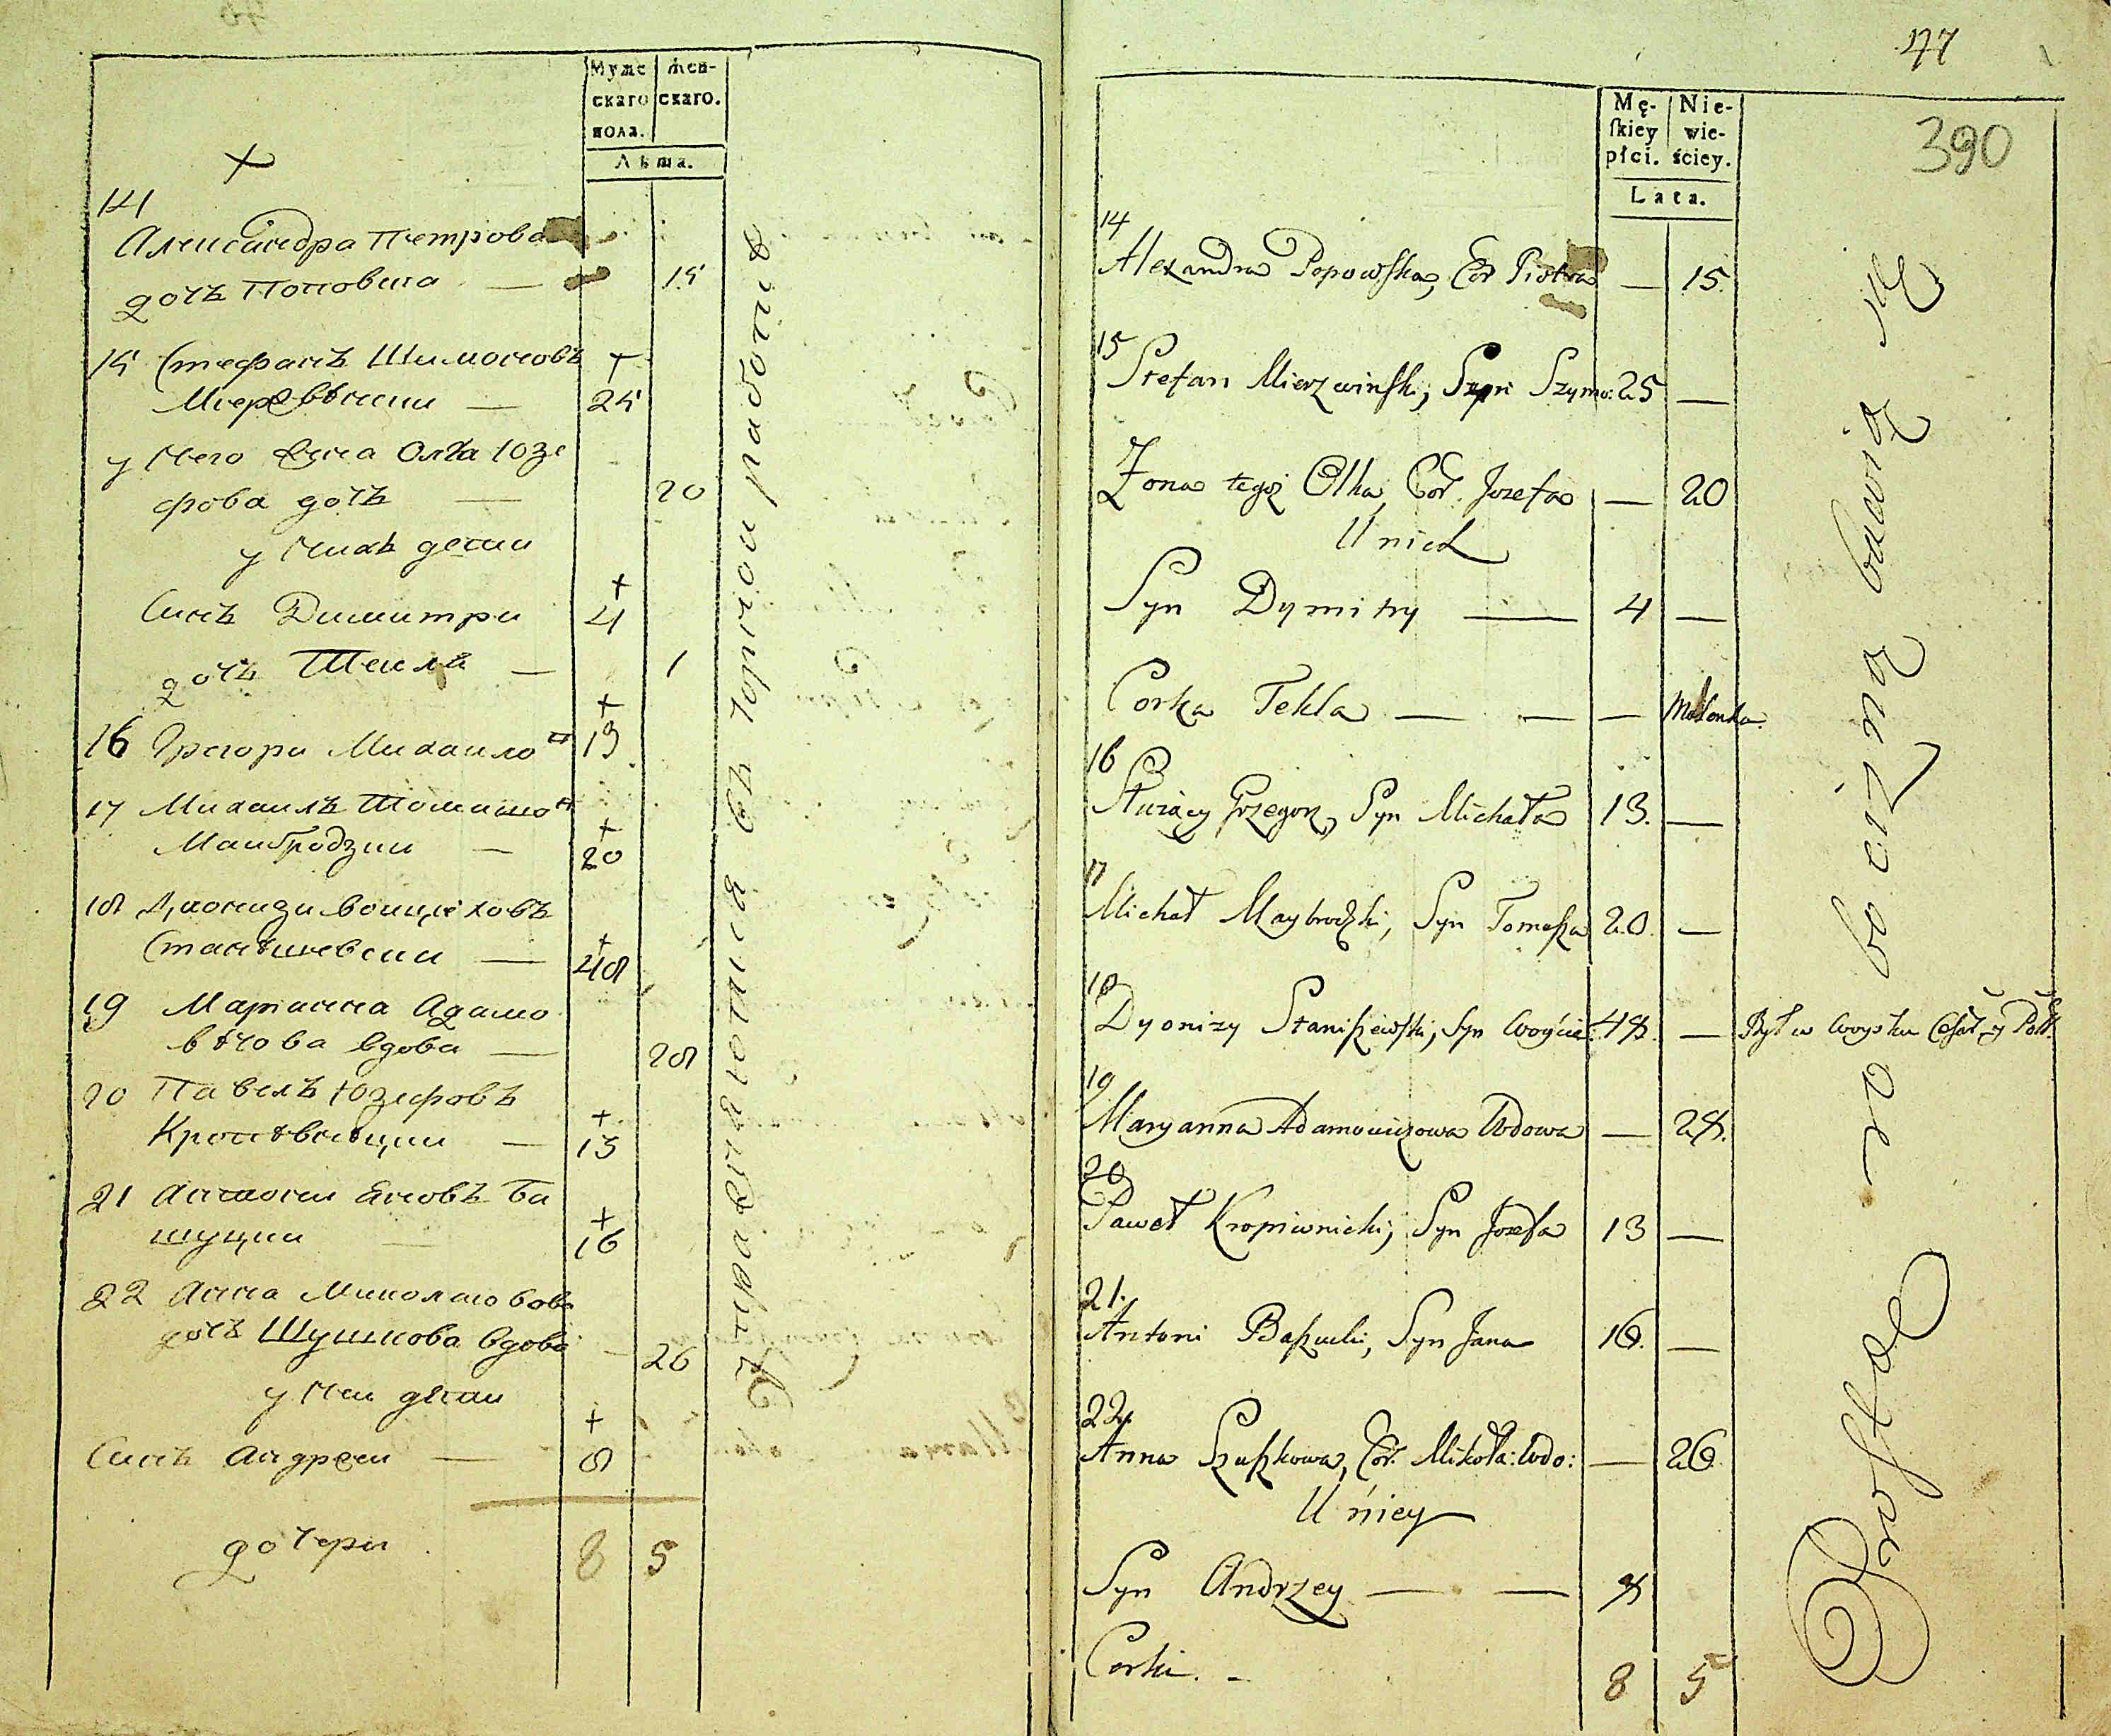 Муже
скаго
пола.
жен-
скаго.
Лѣта.
14
Александра Петрова
дочъ Поповска — 15
15 Стефанъ Шимоновъ
Мержвѣнски — 25
у него жена Олга Юзе
фова дочъ — 20
у нихъ дети
Синъ Димитри 4
дочъ Текля — 1
16 Грегори Михайло 13
17 Михаилъ Томашо
Майбродзки — 20
18 Дионизи Войцеховъ
Станѣшевски — 48
19 Марианна Адамо
вѣчова вдова — 28
20 Павелъ Юзефовъ
Кропѣвнѣцки — 13
21 Антони Яновъ Ба
шуцки 16
22 Анна Миколаювова
дочъ Шушкова вдова — 26
у ней дѣти
Синъ Андрей — 8
дочери
8 5
упражняются въ юрной работѣ
47
390
Mę-
skiey
płci.
Nie-
wie-
ściey.
Lata.
14
Alexandra Popowska, Cór Piotra — 15.
15
Stefan Mierzwiński, Syn Szymo: 25 —
Zona tegoż Olka, Cór. Jozefa — 20
U nich
Syn Dymitry — 4 —
Corka Tekla — — — Malenka.
16
Służący Grzegorz, Syn Michała 13. —
17
Michał Maybrodzki, Syn Tomasza 20. —
18
Dyonizy Staniszewski, Syn Woycie: 48. — Był w woysku Cesar. y Pols.
19
Maryanna Adamowiczowa Wdowa — 28.
20
Paweł Kropiwnicki, Syn Jozefa 13 —
21.
Antoni Baszucki, Syn Jana 16. —
22.
Anna Szuszkowa, Cór. Mikoła: Wdo: — 26.
U niey
Syn Andrzey — — 8
Corki. -
8 5
Prostą robocizną bawią się